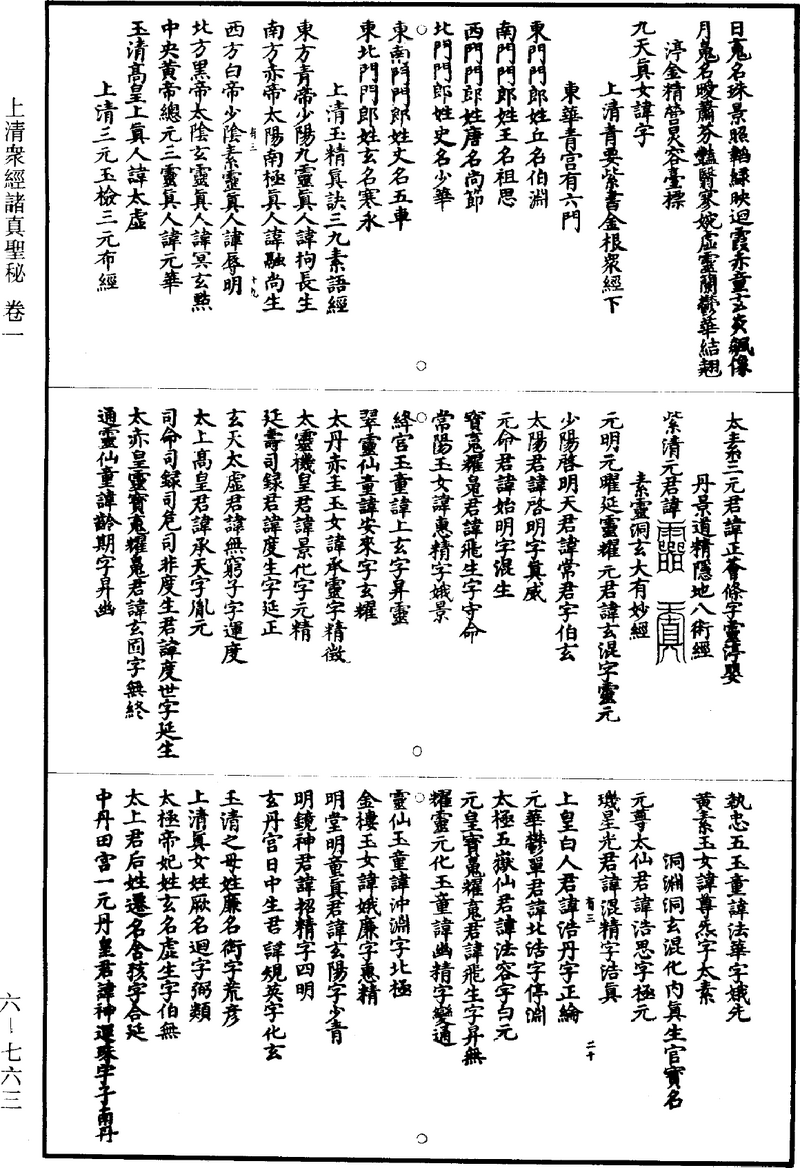 日䰟名珠景照韜綠映迴霞赤童玄炎飆像
月䰟名曖蕭芬豔翳寥婉虛靈蘭鬱華結翹
淳金精瑩炅容臺標
九天真女諱字
上清青要紫書金根眾經下
東華青宮有六門
東門門郎姓丘名伯淵
南門門郎姓王名祖思
西門門郎姓唐名尚節
北門門郎姓史名少華
東南門門郎姓文名五車
東北門門郎姓玄名寒水
上清玉精真訣三九素語經
東方青帝少陽九靈真人諱拘長生
南方赤帝太陽南極真人諱融尚生
有三 十九
西方白帝少陰素靈真人諱辱明
北方黑帝太陰玄靈真人諱冥玄點
中央黃帝總元三靈真人諱元華
玉清高皇上真人諱太虛
上清三元玉檢三元布經
太素三元君諱正薈條字靈淳嬰
丹景道精隱地八術經
紫清元君諱
素靈洞玄大有妙經
元明元曜延靈耀元君諱玄混字靈元
少陽啓明天君諱常君字伯玄
太陽君諱啓明字真威
元命君諱始明字混生
寶䰟耀䰟君諱飛生字守命
常陽玉女諱惠精字娥景
絳宮玉童諱上玄字昇靈
翠靈仙童諱安來字玄耀
太丹赤圭玉女諱承靈字精微
太靈機皇君諱景化字元精
延壽司錄君諱度生字延正
玄天太虛君諱無窮子字運度
太上高皇君諱承天字胤元
司命司錄司危司非度生君諱度世字延生
太赤皇靈寶䰟耀䰟君諱玄囘字無終
通靈仙童諱齡期字昇幽
執忠五玉童諱法華字娥先
黃素玉女諱尊烝字太素
洞淵洞玄混化內真生官寶名
元尊太仙君諱浩思字極元
璣星光君諱混精字浩真
有三 二十
上皇白人君諱浩丹字正綸
元華鬱單君諱北浩字停淵
太極五嶽仙君諱法容字勻元
元皇寶䰟耀䰟君諱飛生字昇無
耀靈元化玉童諱幽精字變通
靈仙玉童諱沖淵字北極
金樓玉女諱娥廉字惠精
明堂明童真君諱玄陽字少青
明鏡神君諱招精字四明
玄丹宮日中生君諱規英字化玄
玉清之母姓廉名銜字荒彥
上清真女姓厥名迴字弼類
太極帝妃姓玄名虛生字伯無
太上君后姓遷名含孩字合延
中丹田宮一元丹皇君諱神運珠字子南丹
上清眾經諸真聖秘 卷一
六—七六三